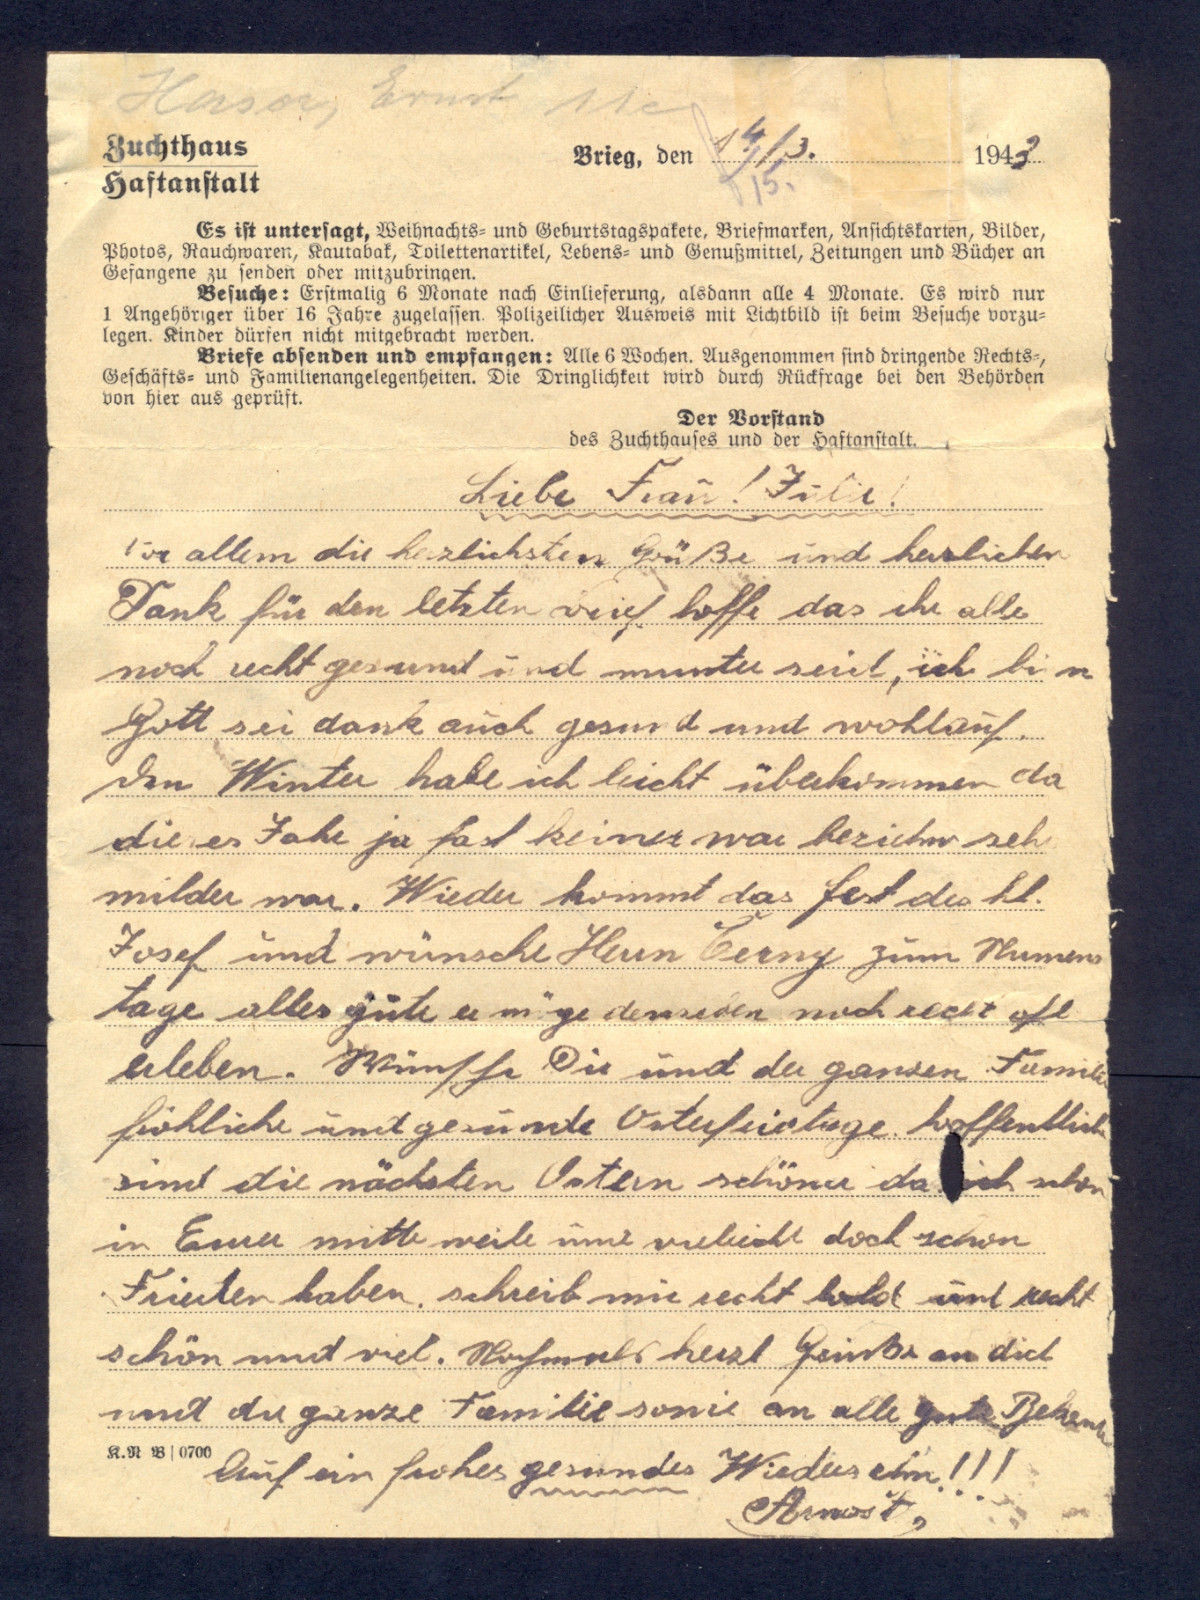 Ernst
Zuchthaus
Haftanstalt
Brieg, den 14/3. 1943
15.
Es ist untersagt, Weihnachts- und Geburtstagspakete, Briefmarken, Ansichtskarten, Bilder,
Photos, Rauchwaren, Kautabak, Toilettenartikel, Lebens- und Genußmittel, Zeitungen und Bücher an
Gefangene zu senden oder mitzubringen.
Besuche: Erstmalig 6 Monate nach Einlieferung, alsdann alle 4 Monate. Es wird nur
1 Angehöriger über 16 Jahre zugelassen. Polizeilicher Ausweis mit Lichtbild ist beim Besuche vorzu-
legen. Kinder dürfen nicht mitgebracht werden.
Briefe absenden und empfangen: Alle 6 Wochen. Ausgenommen sind dringende Rechts-,
Geschäfts- und Familienangelegenheiten. Die Dringlichkeit wird durch Rückfrage bei den Behörden
von hier aus geprüft.
Der Vorstand
des Zuchthauses und der Haftanstalt.
Liebe Frau! Julie!
Vor allem die herzlichsten Grüße und herzlichen
Dank für den letzten hoffe das ihr alle
noch recht gesund und munter seid, ich bin
Gott sei dank auch gesund und wohlauf.
Den Winter habe ich leicht überkommen da
dieses Jahr ja fast keiner war seh
milder war. Wieder kommt das fest des hl.
Josef und wünsche Herrn Černy zum Namens
tage alles gute er möge denselben noch recht oft
erleben. Wünsche Dir und der ganzen Familie
fröhliche und gesunde Osterfeiertage. hoffentlich
sind die nächsten Ostern schöner da ich schon
in Eurer mitte weile und vieleicht doch schon
Frieden haben. schreib mir recht bald und recht
schön und viel. Nochmals herzl Grüße an dich
und die ganze Familie sowie an alle gute
K.R B | 0700
Auf ein frohes gesundes Wiedersehn!!!
Arnošt,